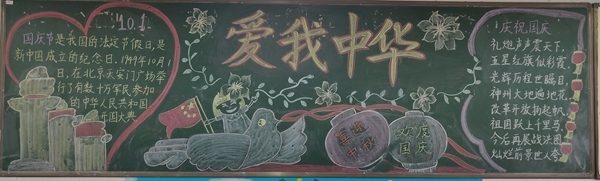 10.1
国庆节是我国的法定节假日，是
新中国成立的纪念日。1949年10月1
日，在北京天安门广场举
行了有数十万军民参加
的中华人民共和国
开国大典
爱我中华
欢度
国庆
庆祝国庆
礼炮声声震天下，
五星红旗似彩霞。
光辉历程世瞩目，
神州大地遍地花。
改革开放扬起帆，
祖国跃上千里马。
今后再展战洪图，
灿烂前景世人夸